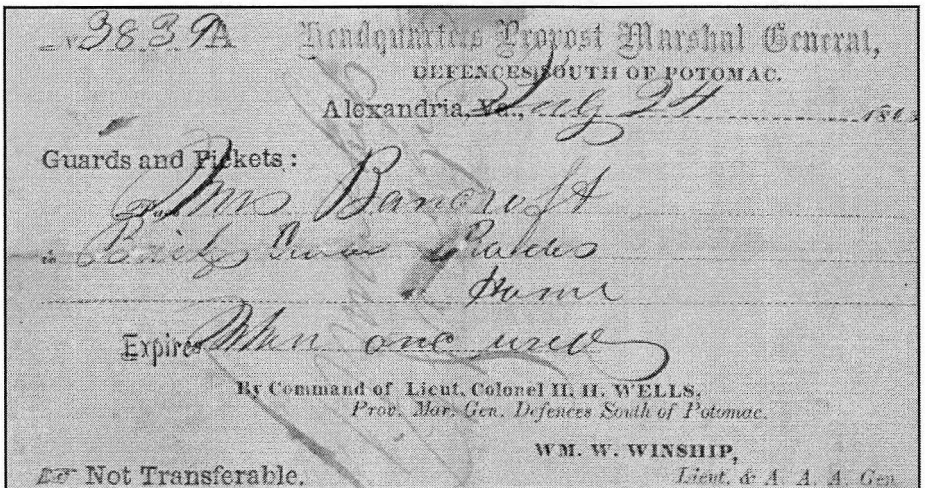 No 3839A Headquarters Provost Marshal General,
DEFENCES SOUTH OF POTOMAC.
Alexandria, Va., July 24 186
Guards and Pickets:
Pass Mrs Bancroft
to
Home
Expires When once used
By Command of Lieut. Colonel H. H. WELLS,
Prov. Mar. Gen. Defences South of Potomac.
WM. W. WINSHIP,
Not Transferable. Lieut. & A. A. A. Gen